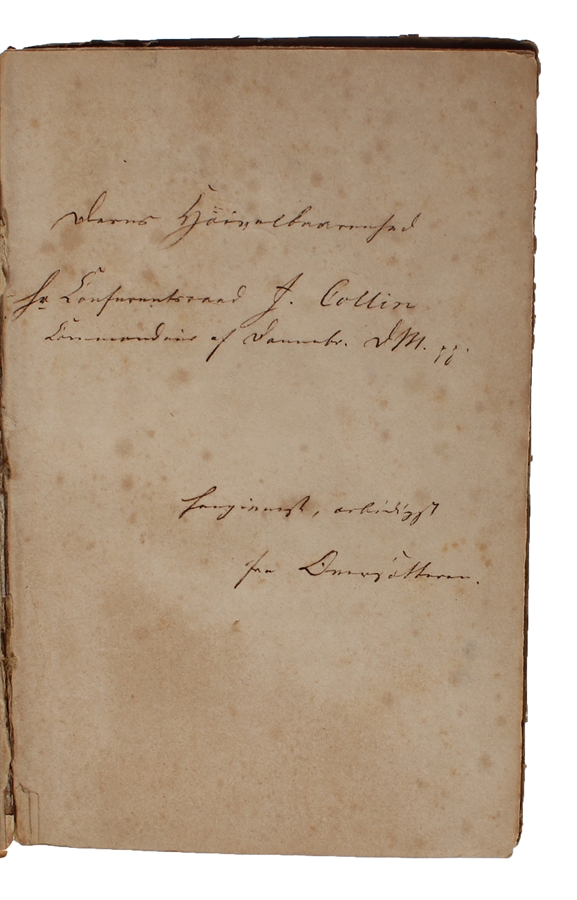 Deres Höivelbaarenhed
Hr Conferentsraad J. Collin
Commandeur af Dannebr. DM. pp.
hengivenst, ærbödigst
fra Oversætteren.